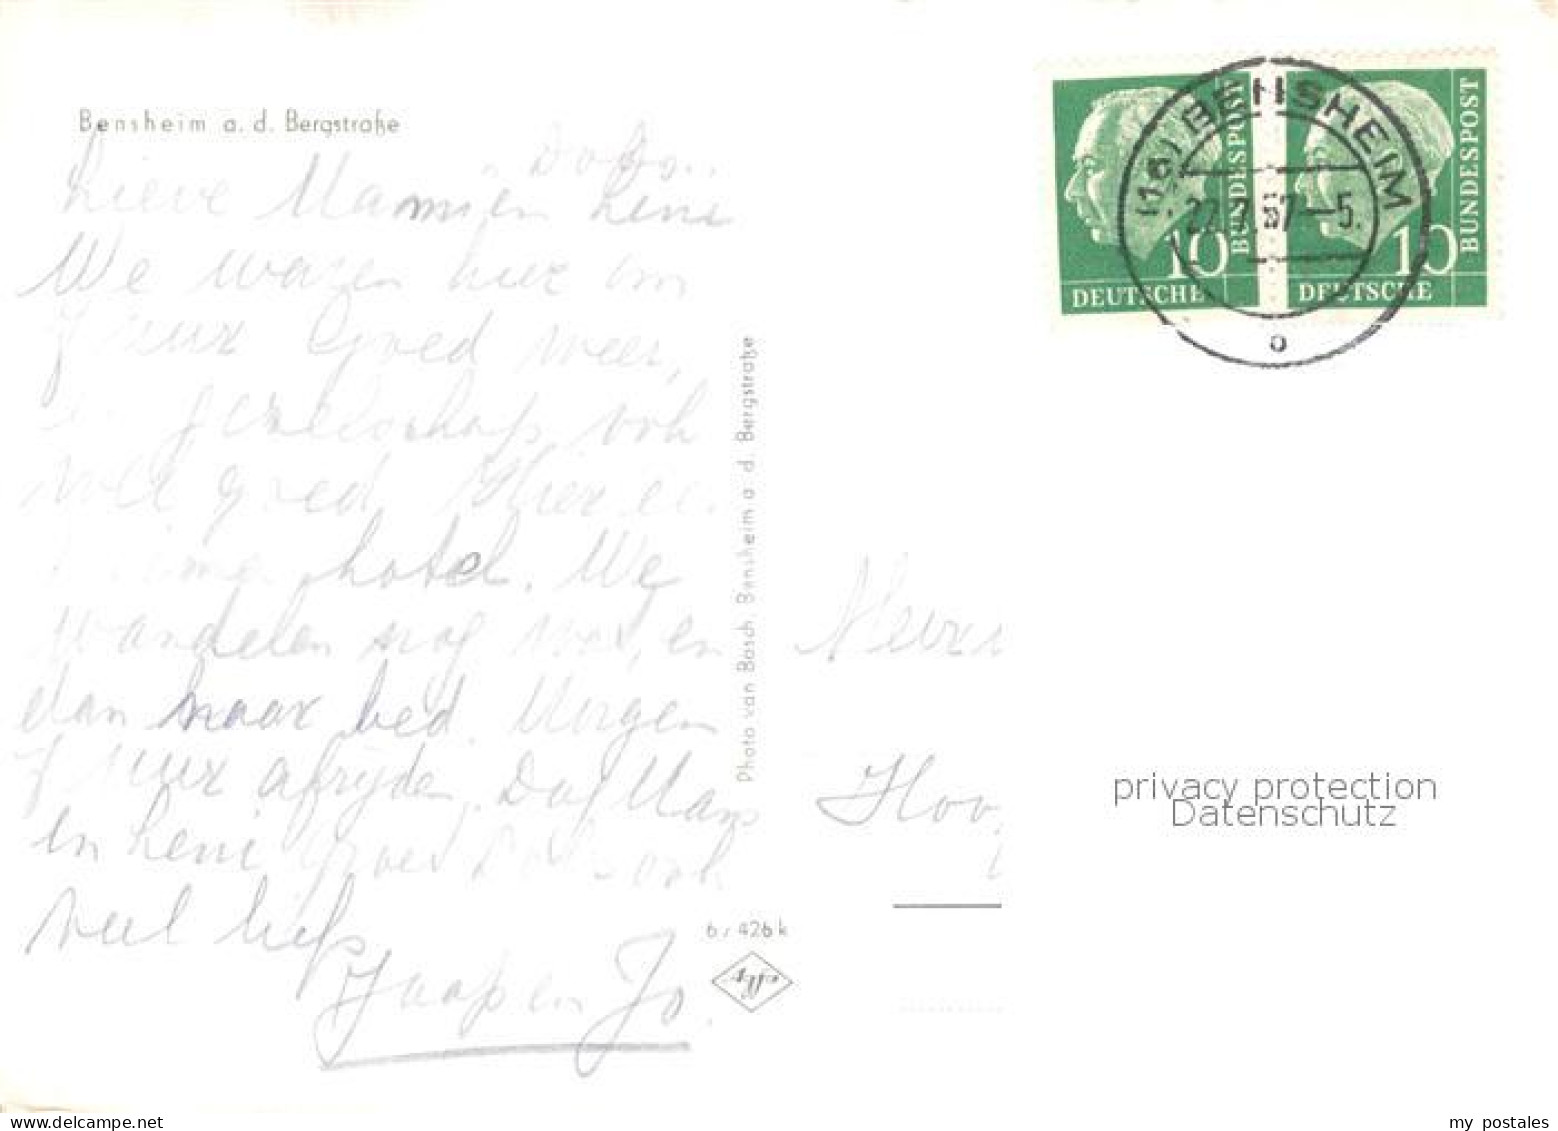 Bensheim a. d. Bergstraße
Lieve Mamsien Leni
We waren hier om
7 uur Goed weer,
gezelschap ook
wel goed. Hier
hotel. We
wandelen nog en
dan naar bed. Morgen
7 uur afrijden. Dag Mams
en Leni Goed ook
veel liefs
Jaap en Jo.
Photo van Bosch, Bensheim a. d. Bergstraße
6/426k
DEUTSCHE BUNDESPOST 10
DEUTSCHE BUNDESPOST 10
(16) BENSHEIM
.57-5
o
privacy protection
Datenschutz
my postales